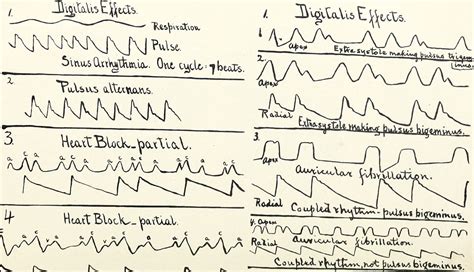 1. Digitalis Effects.
Respiration
Pulse.
Sinus Arrhythmia. One cycle = 7 beats.
2. Pulsus alternans.
3.
Heart Block_partial.
a c a a c a a c a a c a c
4
Heart Block_partial.
1. Digitalis Effects.
1. Apex
Extrasystole making pulsus trigeminus.
2.
Apex
Radial Extrasystole making pulsus bigeminus.
3.
Apex
Auricular fibrillation.
Radial
Coupled rhythm-pulsus bigeminus.
4. Apex
Radial Auricular fibrillation.
Coupled rhythm, not pulsus bigeminus.